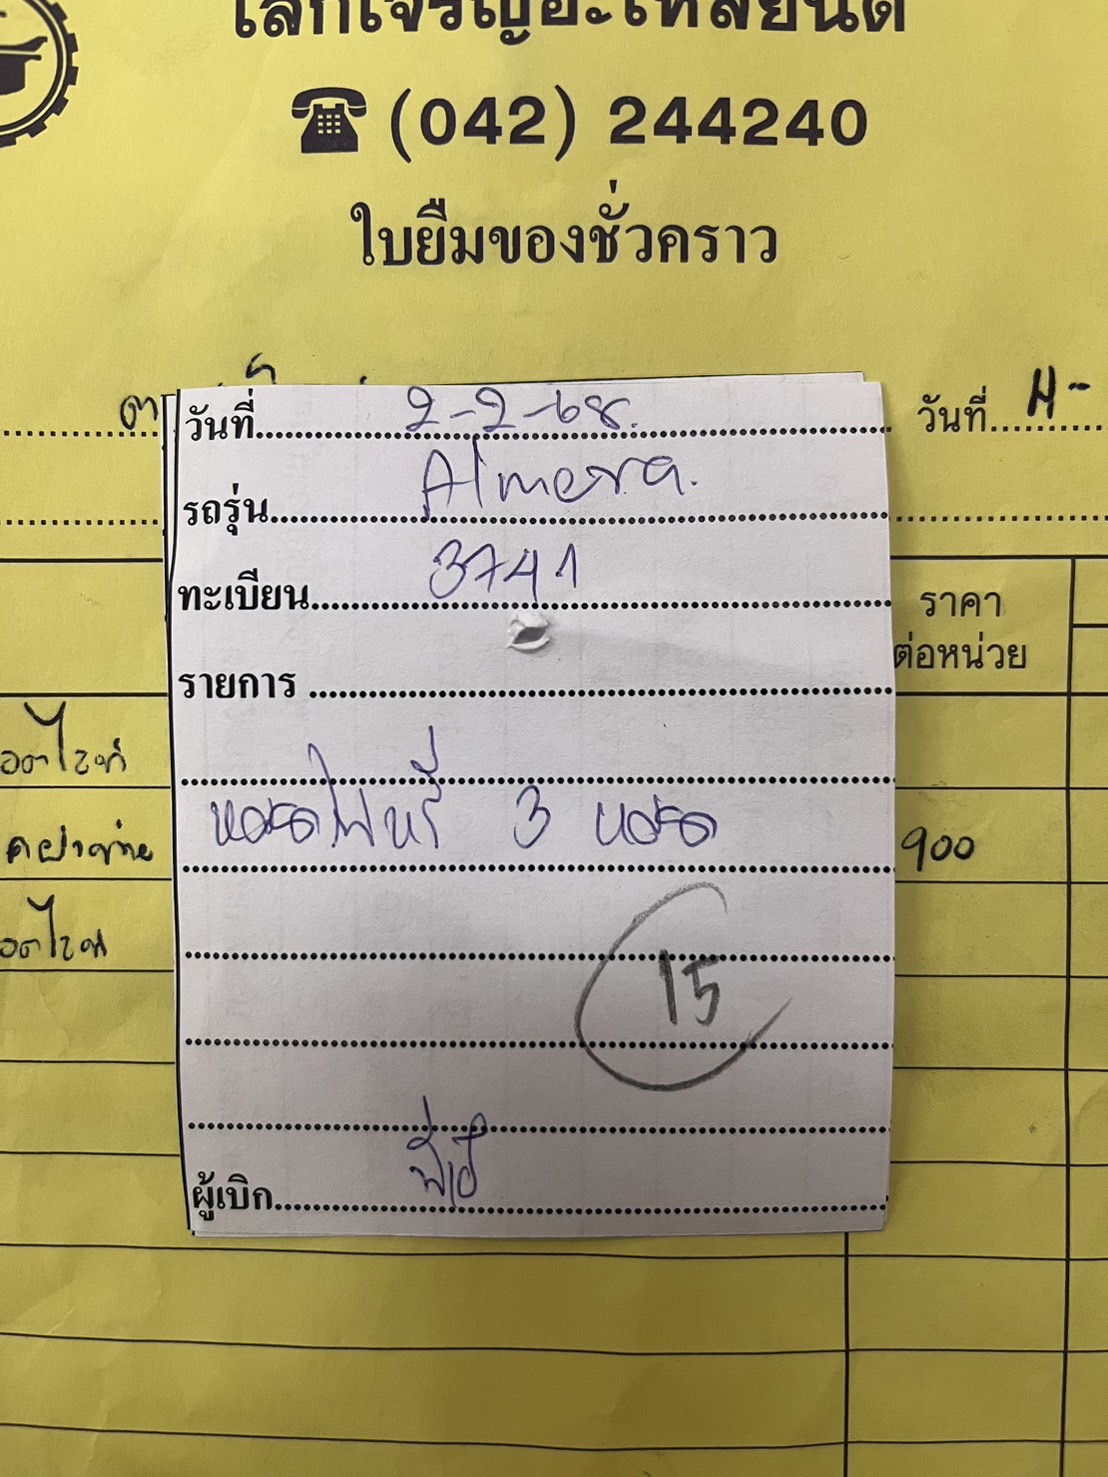 เลกเจริญอะไหล่ยนต์
☎ (042) 244240
ใบยืมของชั่วคราว
วันที่
วันที่ 2-2-68.
รถรุ่น Almera.
ทะเบียน 3741
ราคา
ต่อหน่วย
รายการ
หลอดไฟหรี่ 3 หลอด
900
15
ผู้เบิก พี่เอ๋